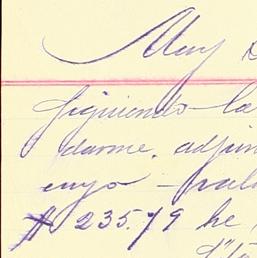 Muy
Siguiendo la
darme, adjun
cuyo valo
$ 235.79 he